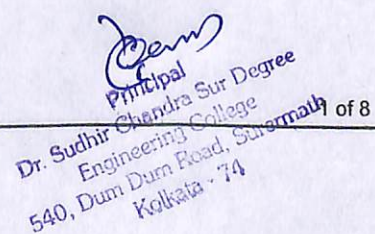 Principal
Dr. Sudhir Chandra Sur Degree
Engineering College
540, Dum Dum Road, Surermath
Kolkata - 74
1 of 8